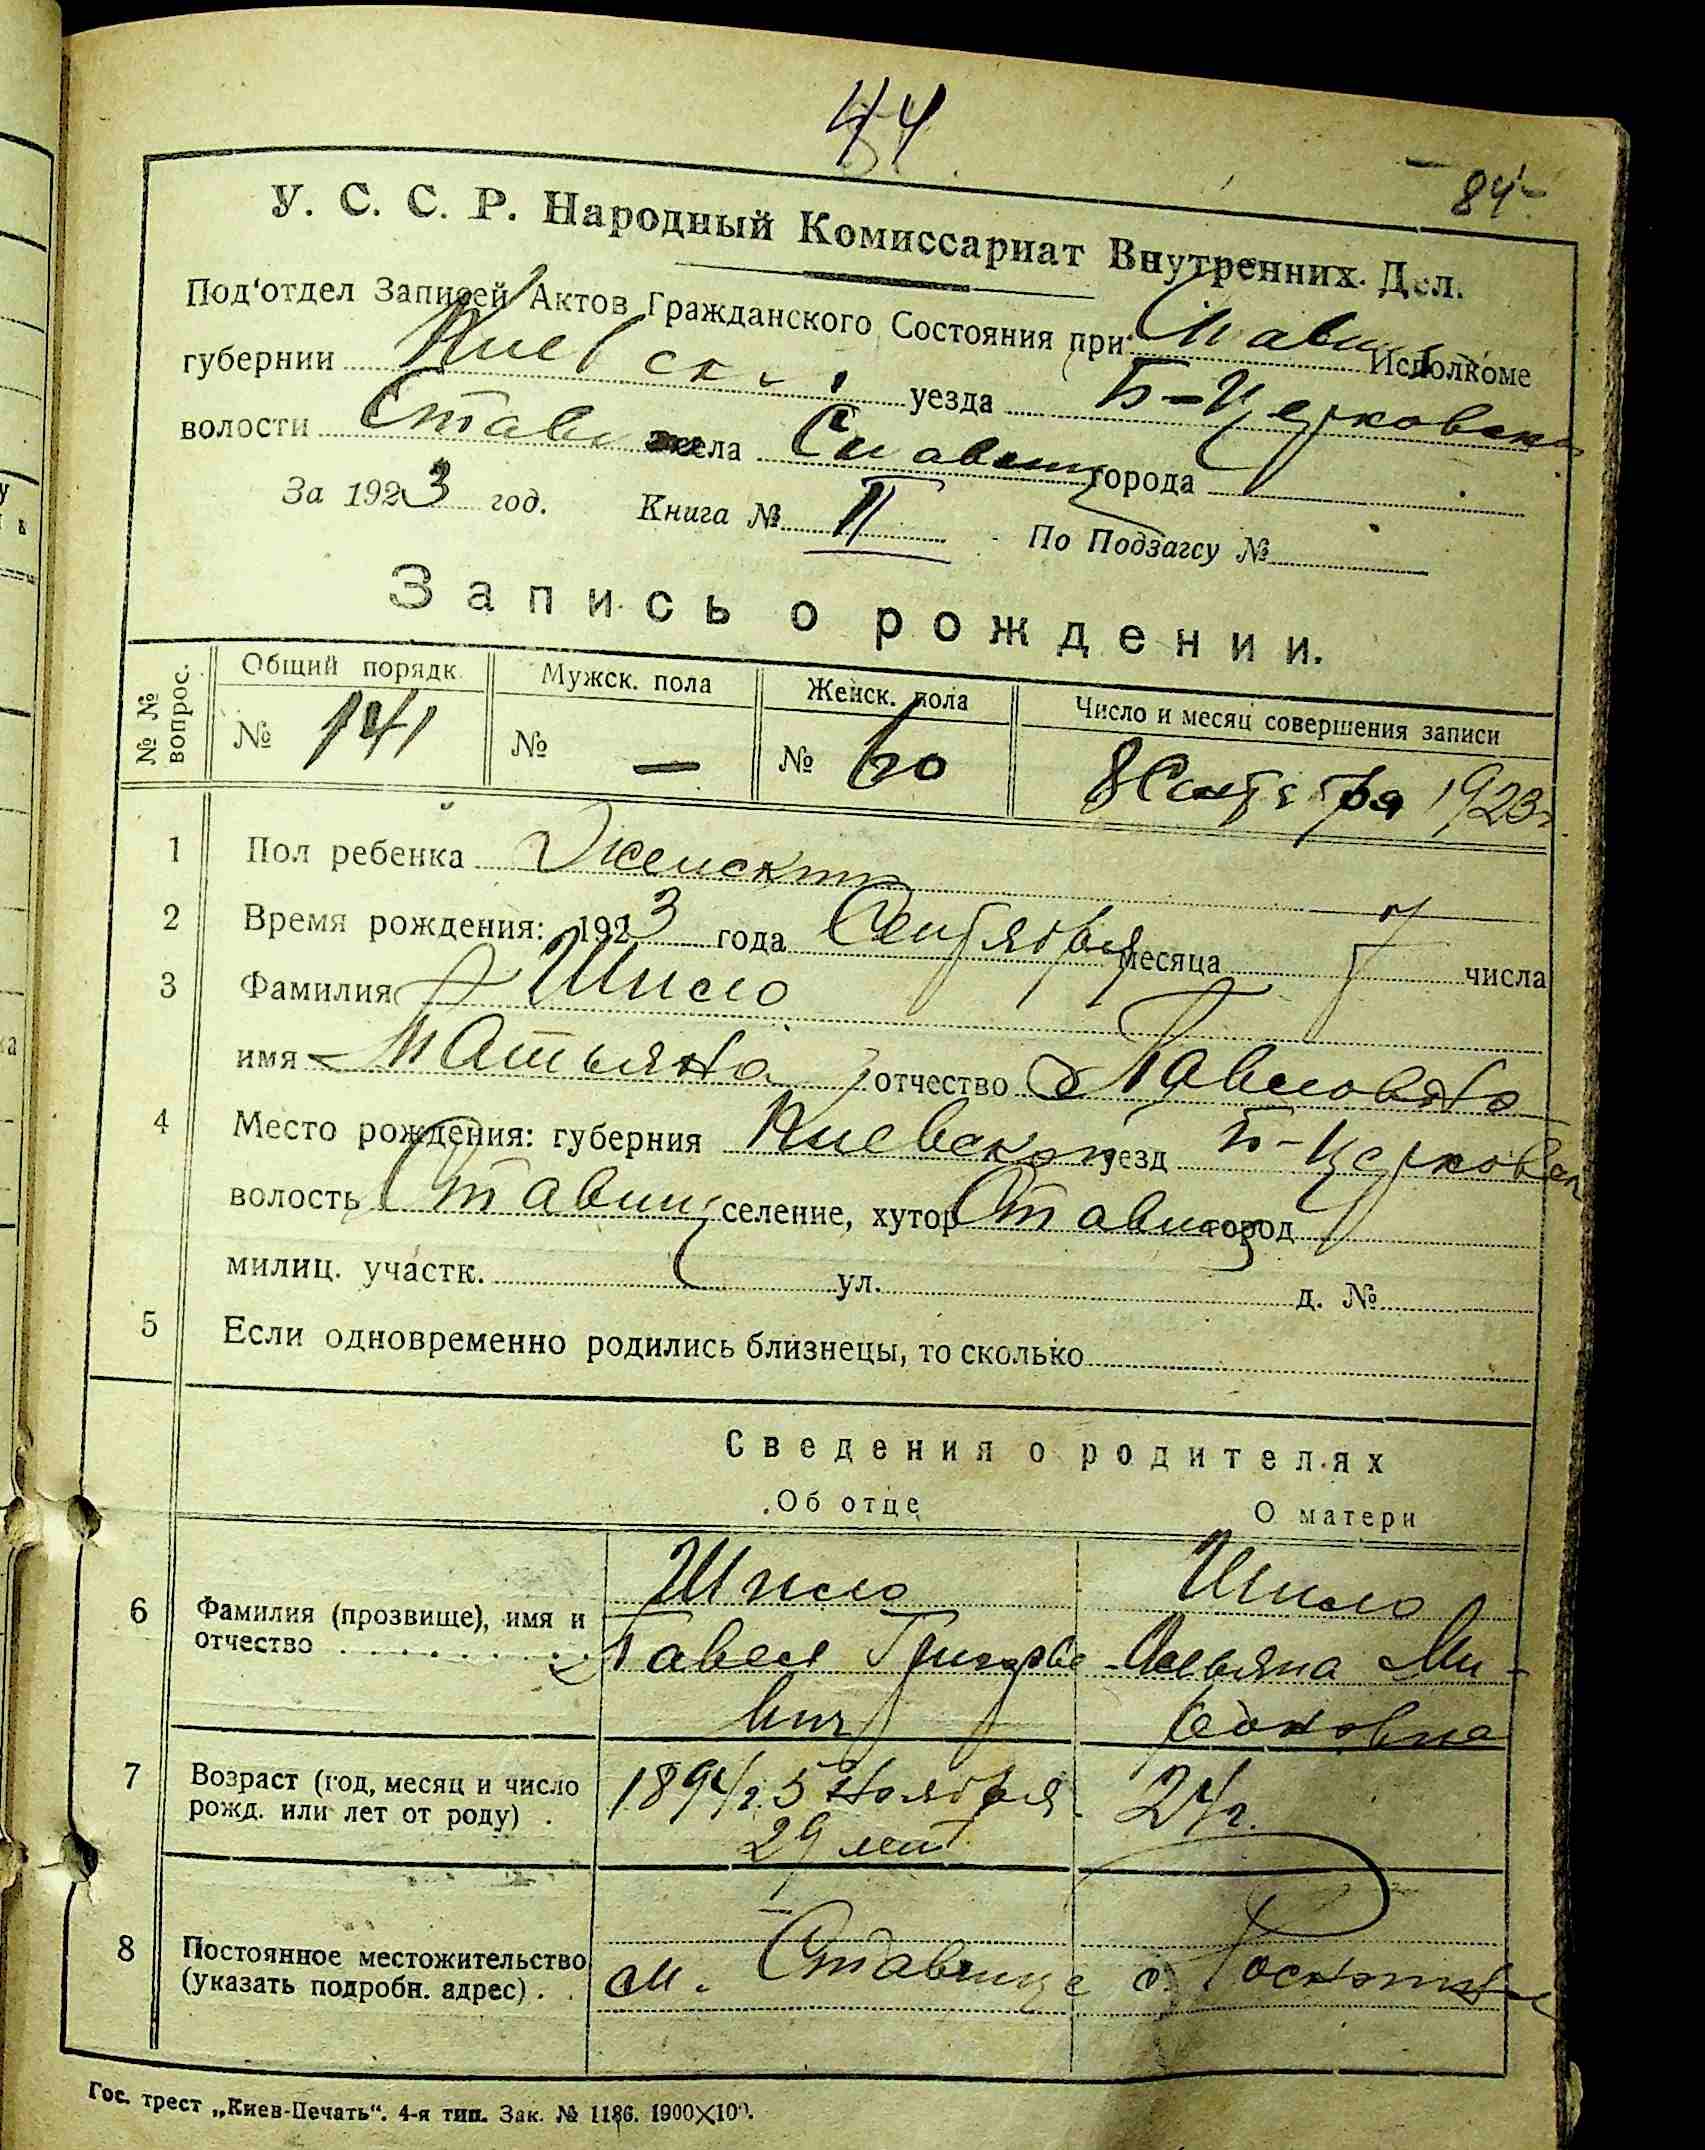 44
84
У. С. С. Р. Народный Комиссариат Внутренних Дел.
Под'отдел Записей Актов Гражданского Состояния при Ставищ Исполкоме
губернии Киевской уезда Б-Церковск
волости Ставищ села Ставищ города
За 1923 год. Книга № II По Подзагсу №
Запись о рождении.
№ № вопрос. Общий порядк. Мужск. пола Женск. пола Число и месяц совершения записи
№ 141 № — № 60 8 Сентября 1923 г.
1 Пол ребенка Женский
2 Время рождения: 1923 года Сентября месяца 7 числа
3 Фамилия Шило
имя Татьяна отчество Павловна
4 Место рождения: губерния Киевской уезд Б-Церковск
волость Ставищ селение, хутор Ставищ город
милиц. участк. ул. д. №
5 Если одновременно родились близнецы, то сколько
Сведения о родителях
Об отце О матери
6 Фамилия (прозвище), имя и отчество Шило Шило
Павел Григорье Ульяна Ми-
вич
7 Возраст (год, месяц и число рожд. или лет от роду) 1894 г. 5 Ноября 24 г.
29 лет
8 Постоянное местожительство (указать подробн. адрес) м. Ставище с.
Гос. трест „Киев-Печать“. 4-я тип. Зак. № 1186. 1900×100.